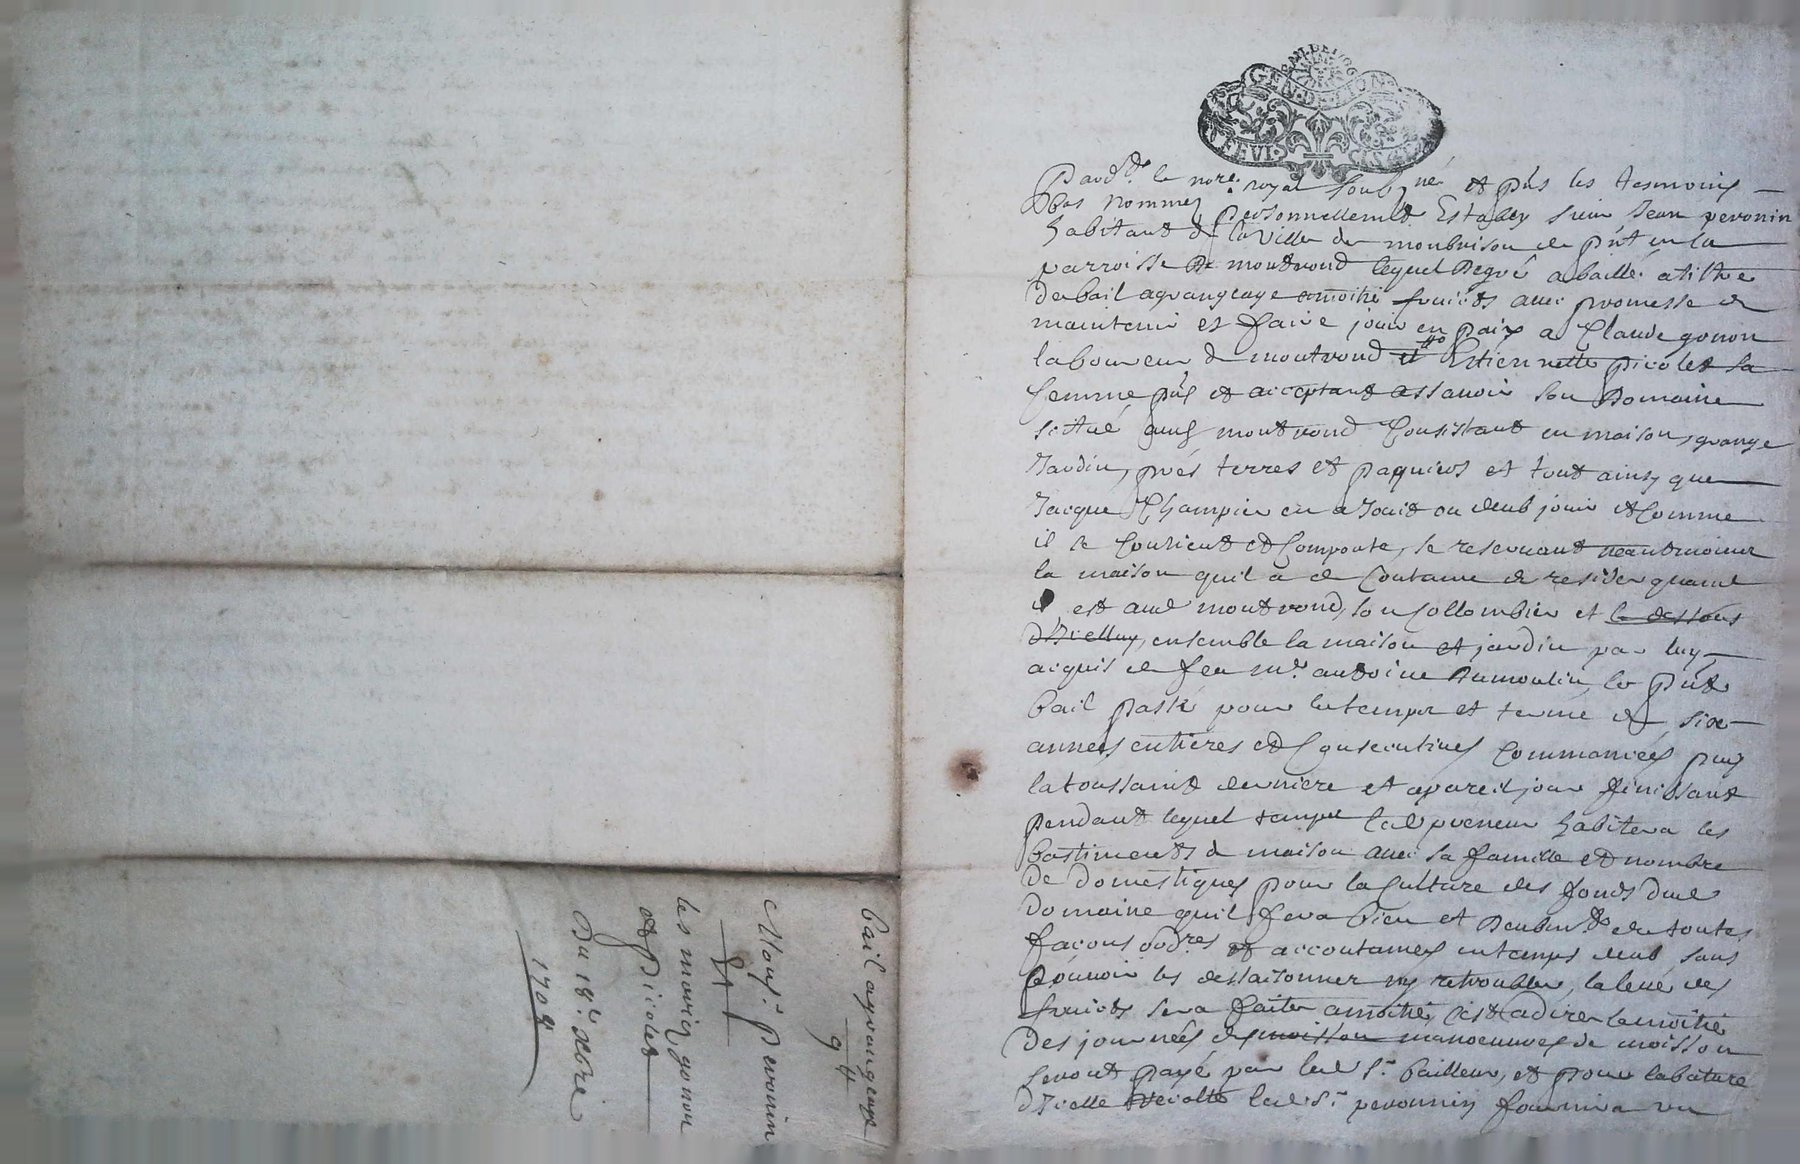 GEN.DE.LION
Pard.t le no.re royal soubz.né et p.ñs les tesmoins
bas nommez personnellem.t Estably sieur Jean peronin
habitant de la Ville de monbrison de p.nt en la
parroisse de montrond lequel degré a baillé a tiltre
de bail a grangeage a moitié fruicts avec promesse de
maintenir et faire jouir en paix a Claude gonon
laboureur de montrond et Estiennette picolet sa
femme p.ñs et acceptant assavoir son Domaine
situé aud montrond Consistant en maison, grange
Jardin, prés terres et paquiers et tout ainsy que
Jacque Champier en a Jouit ou deub jouir et Comme
il se Contient et Comporte, se reservant neantmoins
la maison quil a de Coutume de resider quand
il est aud montrond, son Collombier et le dessous
d'Icelluy, ensemble la maison et jardin par luy
acquis de feu m.e antoine Dumoulin, le p.nt
bail passé pour le temps et terme de six
années entieres et Consecutives Commancées puis
la toussaint derniere et a pareil jour finissant
pendant lequel temps led preneur habitera les
bastiments de maison avec sa famille et nombre
de domestiques pour la Culture des fonds dud
domaine quil fera bien et deubm.t de toutes
façons ord.res et accoutumées en temps deub sans
pouvoir les dessaisonner ny retroubler, la levé des
fruicts sera faite a moitié, C'est a dire la moitié
des journées des manoeuvres de moisson
seront payé par led S.r bailleur, et pour la bature
d'Icelle recolte led S.r peronnin fournira un
bail a grangeage
9 4
Mons.r peronin
et
les mariez gonon
et Picolet
Du 18.e xbre
1704